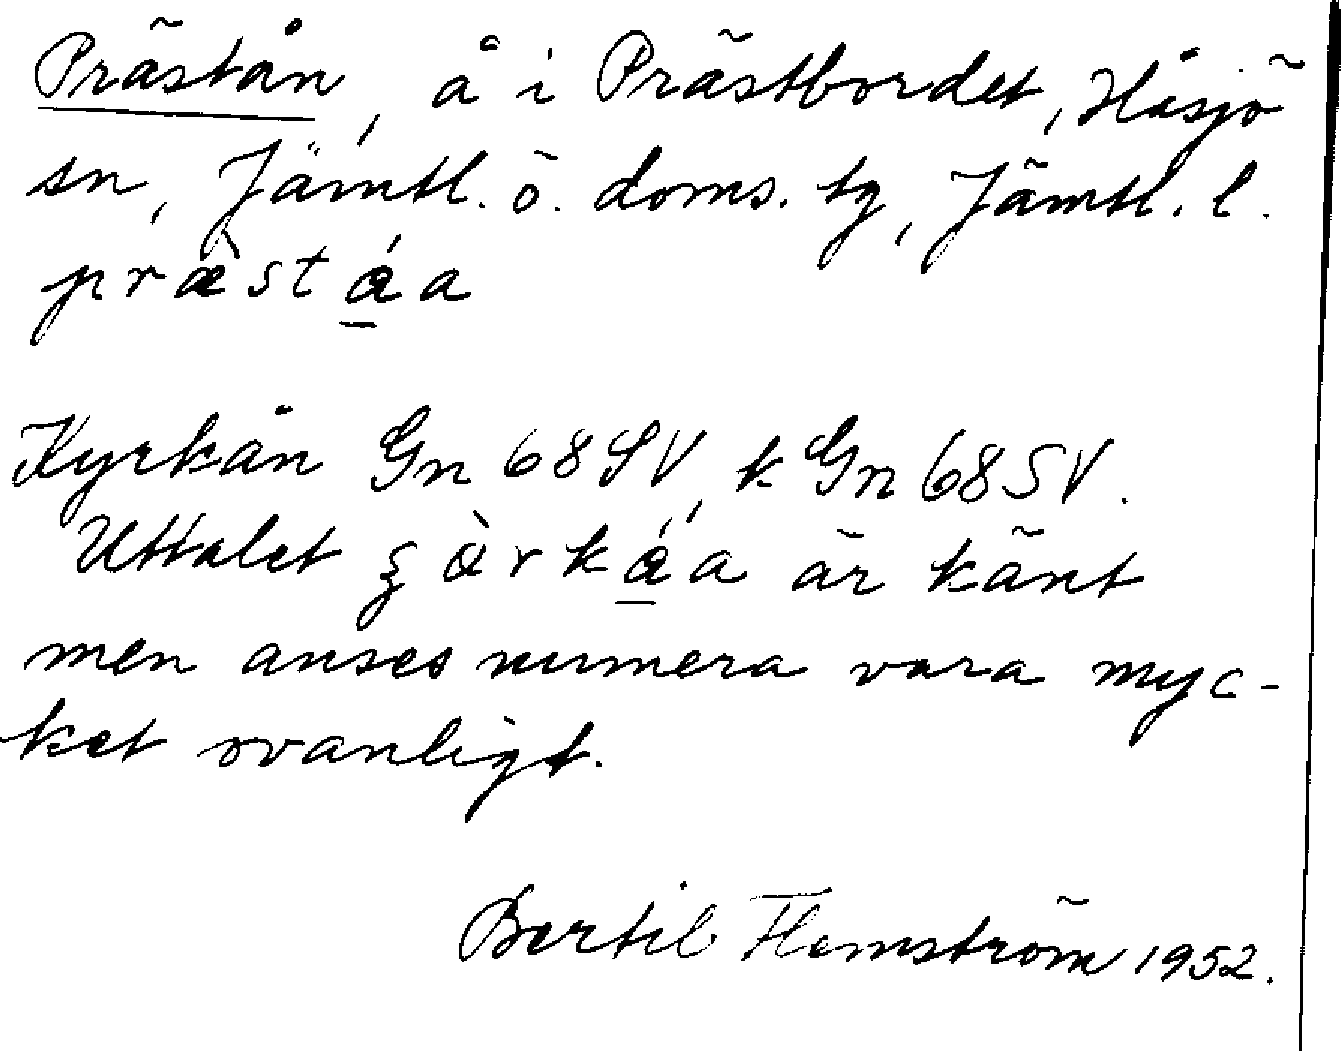 Prästån, å i Prästbordet, Håsjö
sn, Jämtl. ö. doms. tg, Jämtl. l.
præ̀stá̱a
Kyrkån Gn 68 SV, k Gn 68 SV.
Uttalet ʂàrká̱a är känt
men anses numera vara myc-
ket ovanligt.
Bertil Flemström 1952.